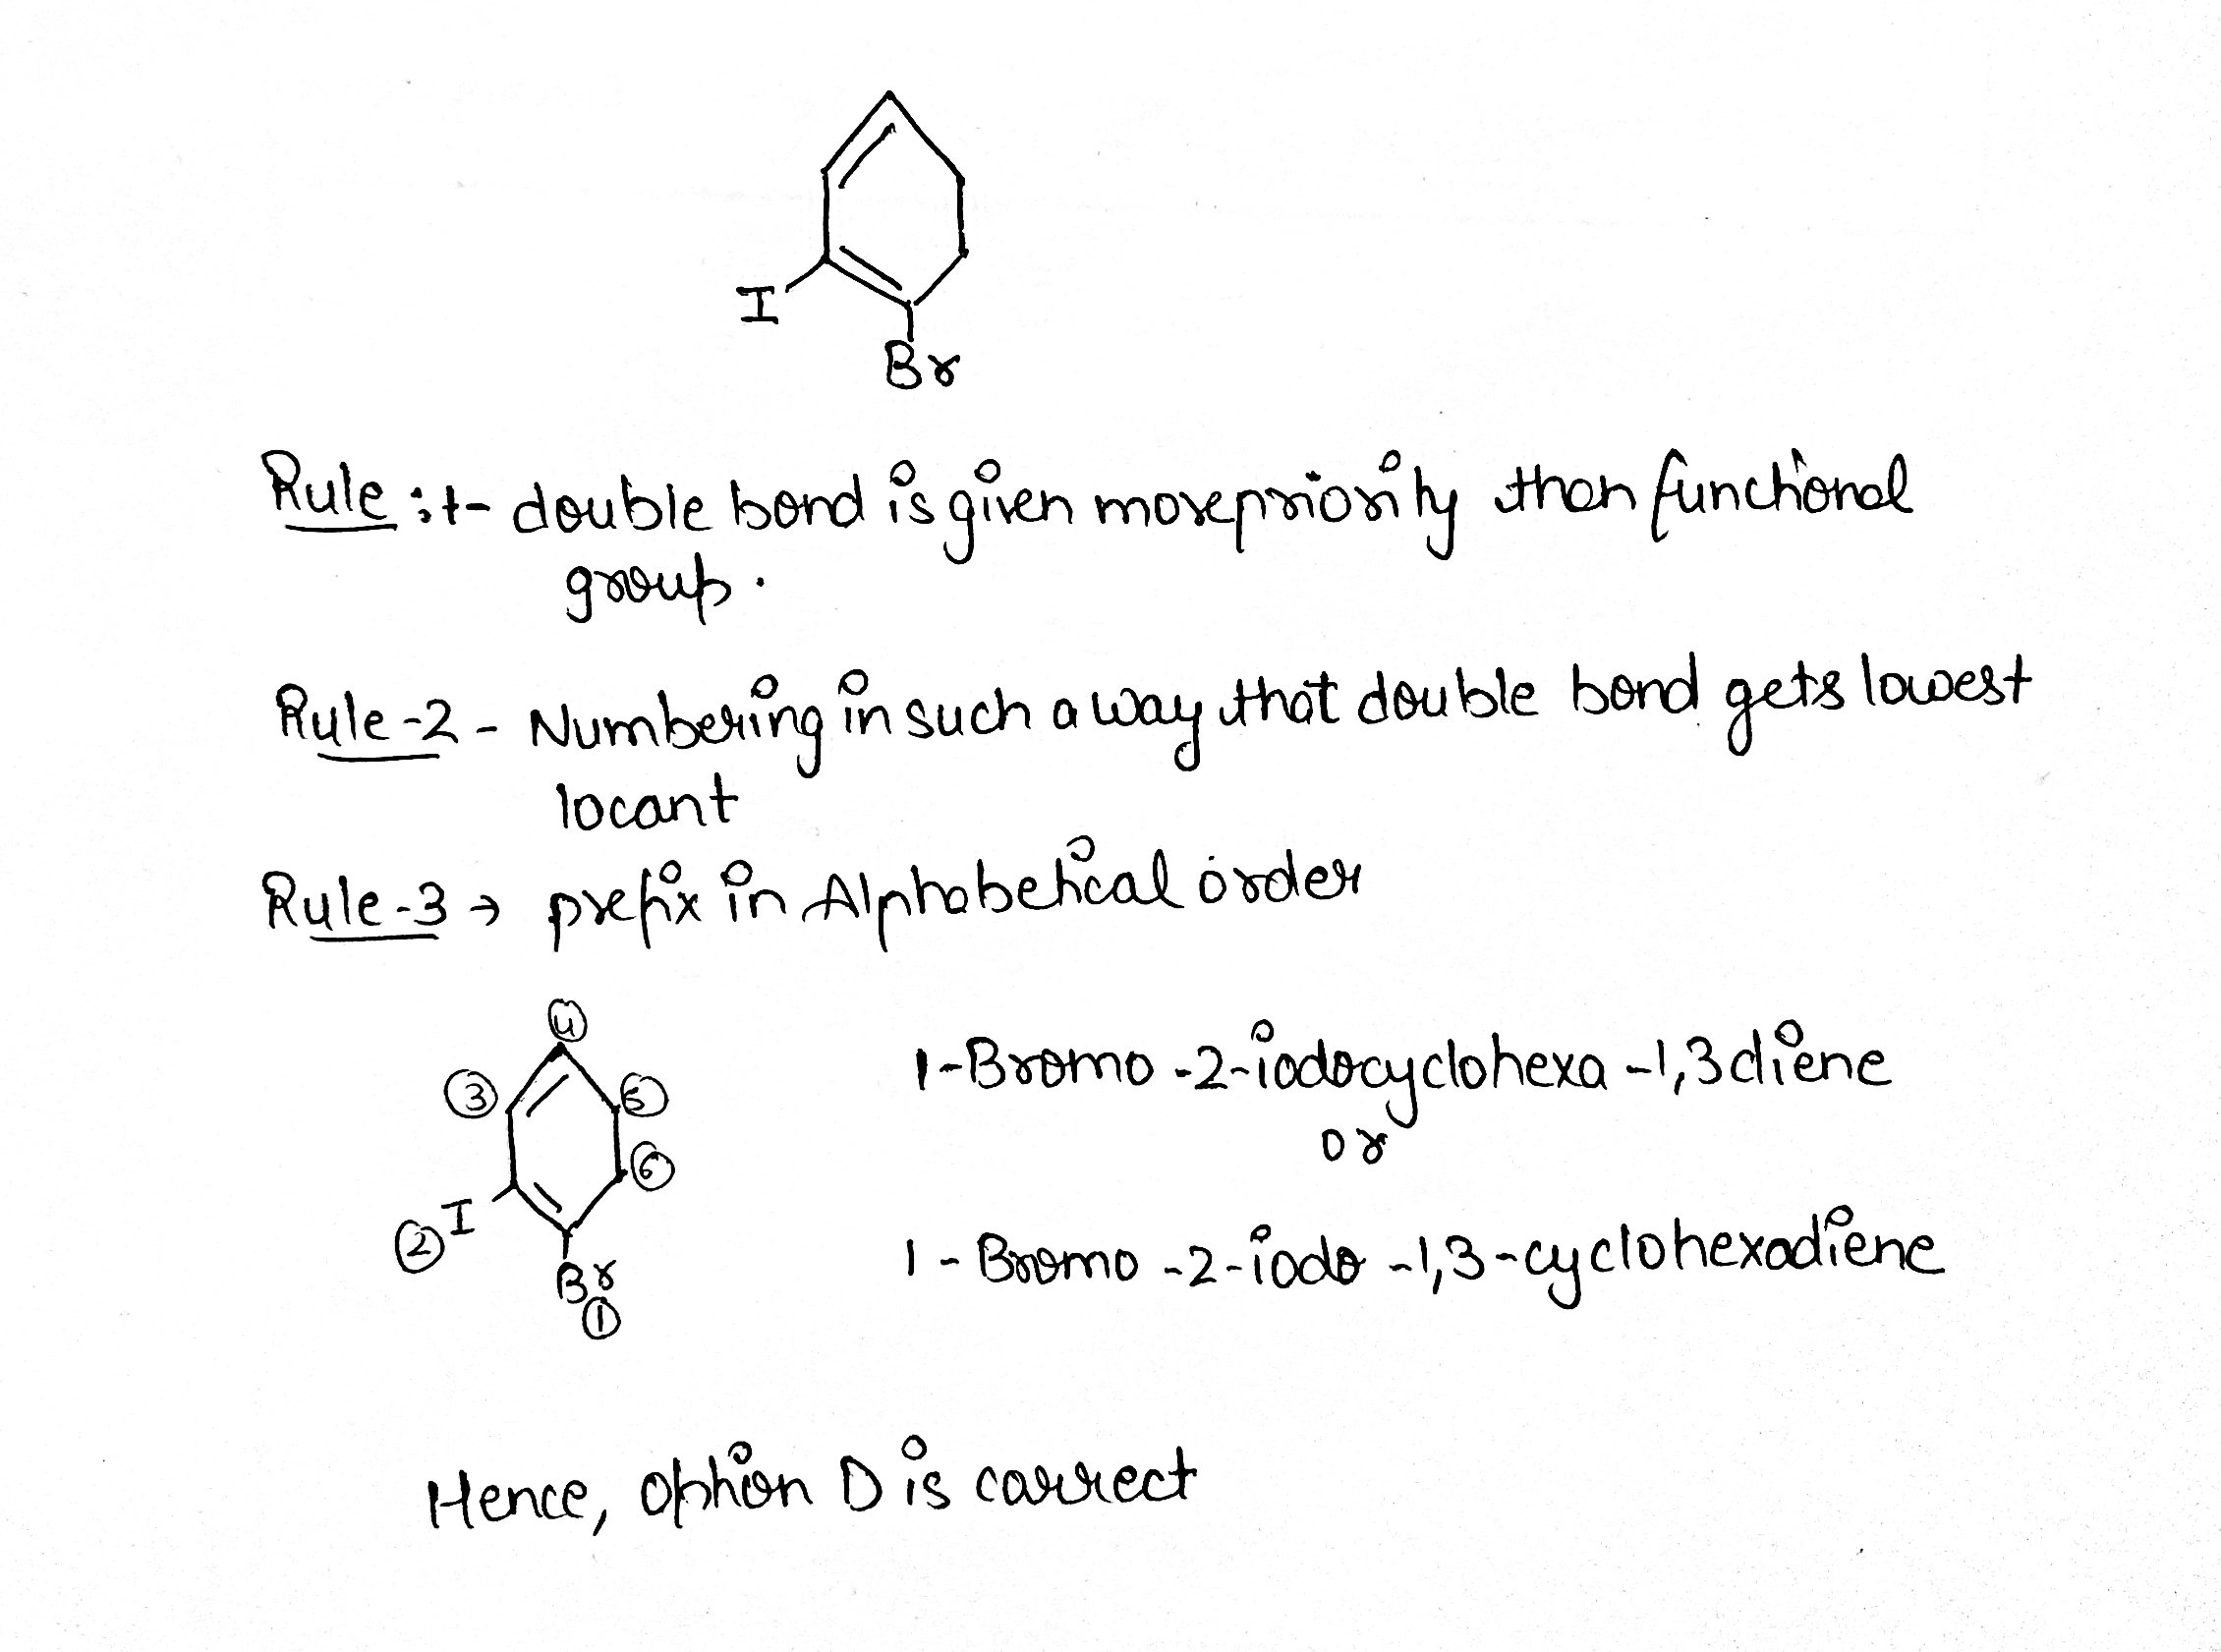 I
Br
Rule :1- double bond is given more priority than functional
group.
Rule-2 - Numbering in such a way that double bond gets lowest
locant
Rule-3 → prefix in Alphabetical order
4
3
5
6
2 I
Br
1
1-Bromo-2-iodocyclohexa-1,3diene
or
1-Bromo-2-iodo-1,3-cyclohexadiene
Hence, option D is correct